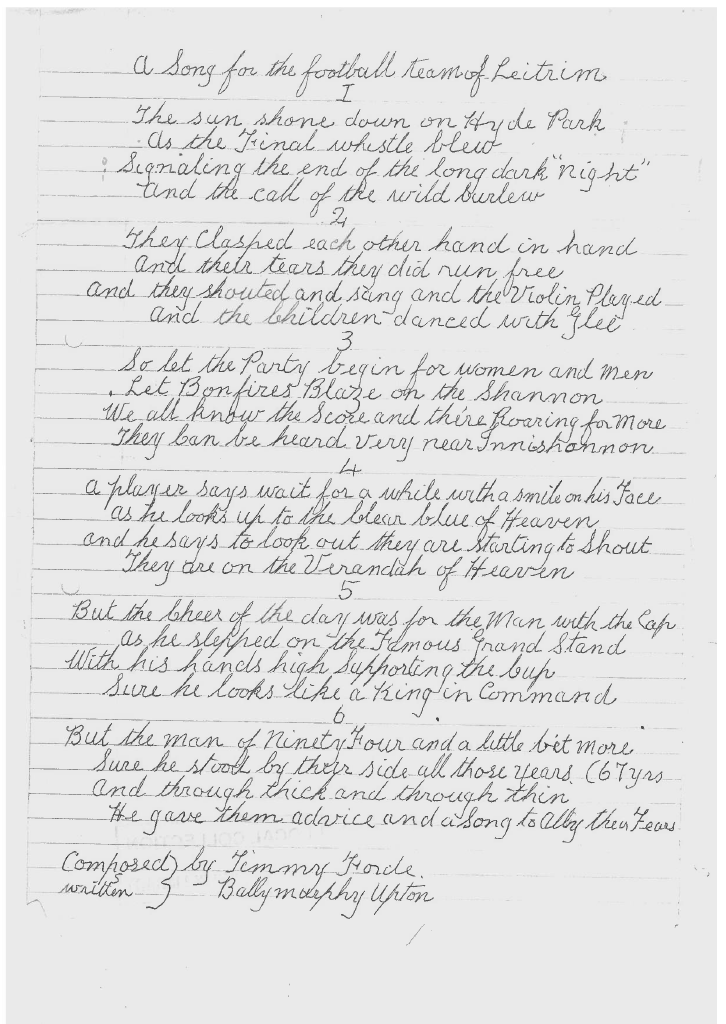 A Song for the football team of Leitrim
I
The sun shone down on Hyde Park
As the Final whistle blew
Signaling the end of the long dark "night"
And the call of the wild Curlew
2
They Clasped each other hand in hand
And their tears they did run free
And they shouted and sang and the Violin Played
And the Children danced with Glee
3
So let the Party begin for women and Men
Let Bonfires Blaze on the Shannon
We all know the Score and there Roaring for More
They Can be heard very near Innishannon
4
A player says wait for a while with a smile on his Face
as he looks up to the Clear blue of Heaven
and he says to look out they are starting to Shout
They are on the Verandah of Heaven
5
But the Cheer of the day was for the Man with the Cap
as he stepped on the Famous Grand Stand
With his hands high supporting the Cup
Sure he looks like a King in Command
6
But the man of Ninety Four and a little bet more
Sure he stood by their side all those years (67yrs
And through thick and through thin
He gave them advice and a song to Alby their Fears
Composed) by Timmy Forde.
written ) Ballymurphy Upton